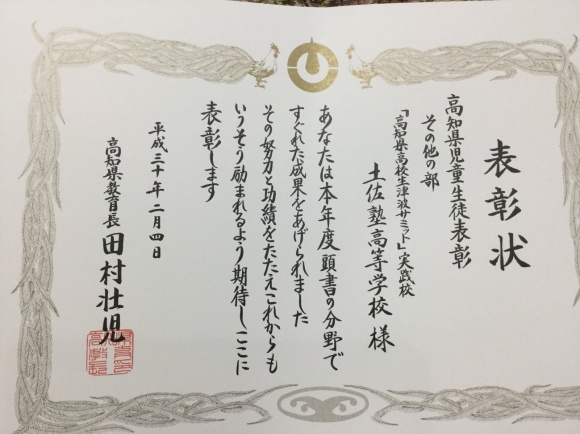 表彰状
高知県児童生徒表彰
その他の部
「高知県高校生津波サミット」実践校
土佐塾高等学校 様
あなたは本年度頭書の分野で
すぐれた成果をあげられました
その努力と功績をたたえこれからも
いっそう励まれるよう期待しここに
表彰します
平成三十年二月四日
高知県教育長 田村壮児